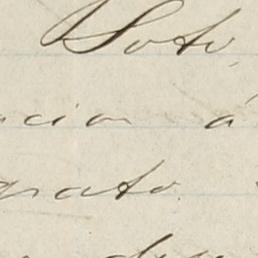 Soto,
cion á
grato